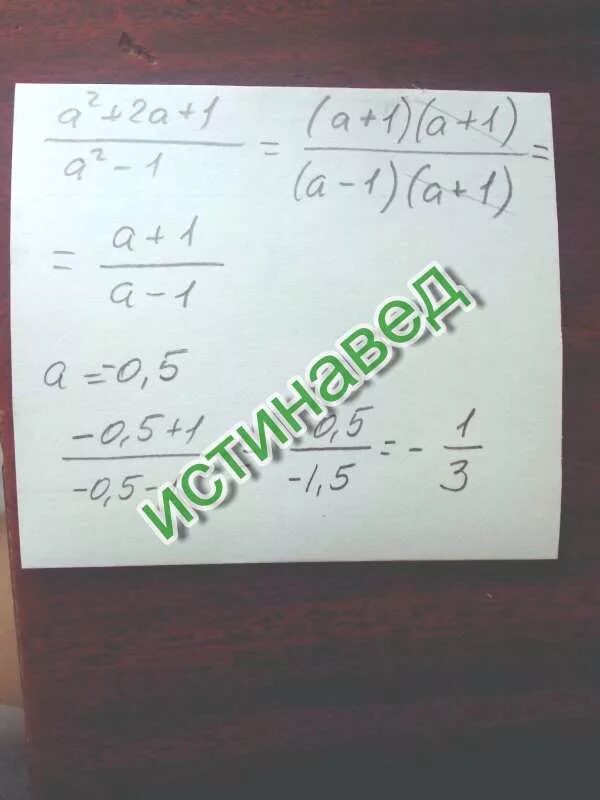 a² + 2a + 1 / a² - 1 = (a + 1)(a + 1) / (a - 1)(a + 1) =
= a + 1 / a - 1
a = -0,5
-0,5 + 1 / -0,5 - 0,5 / -1,5 = - 1 / 3
истинавед